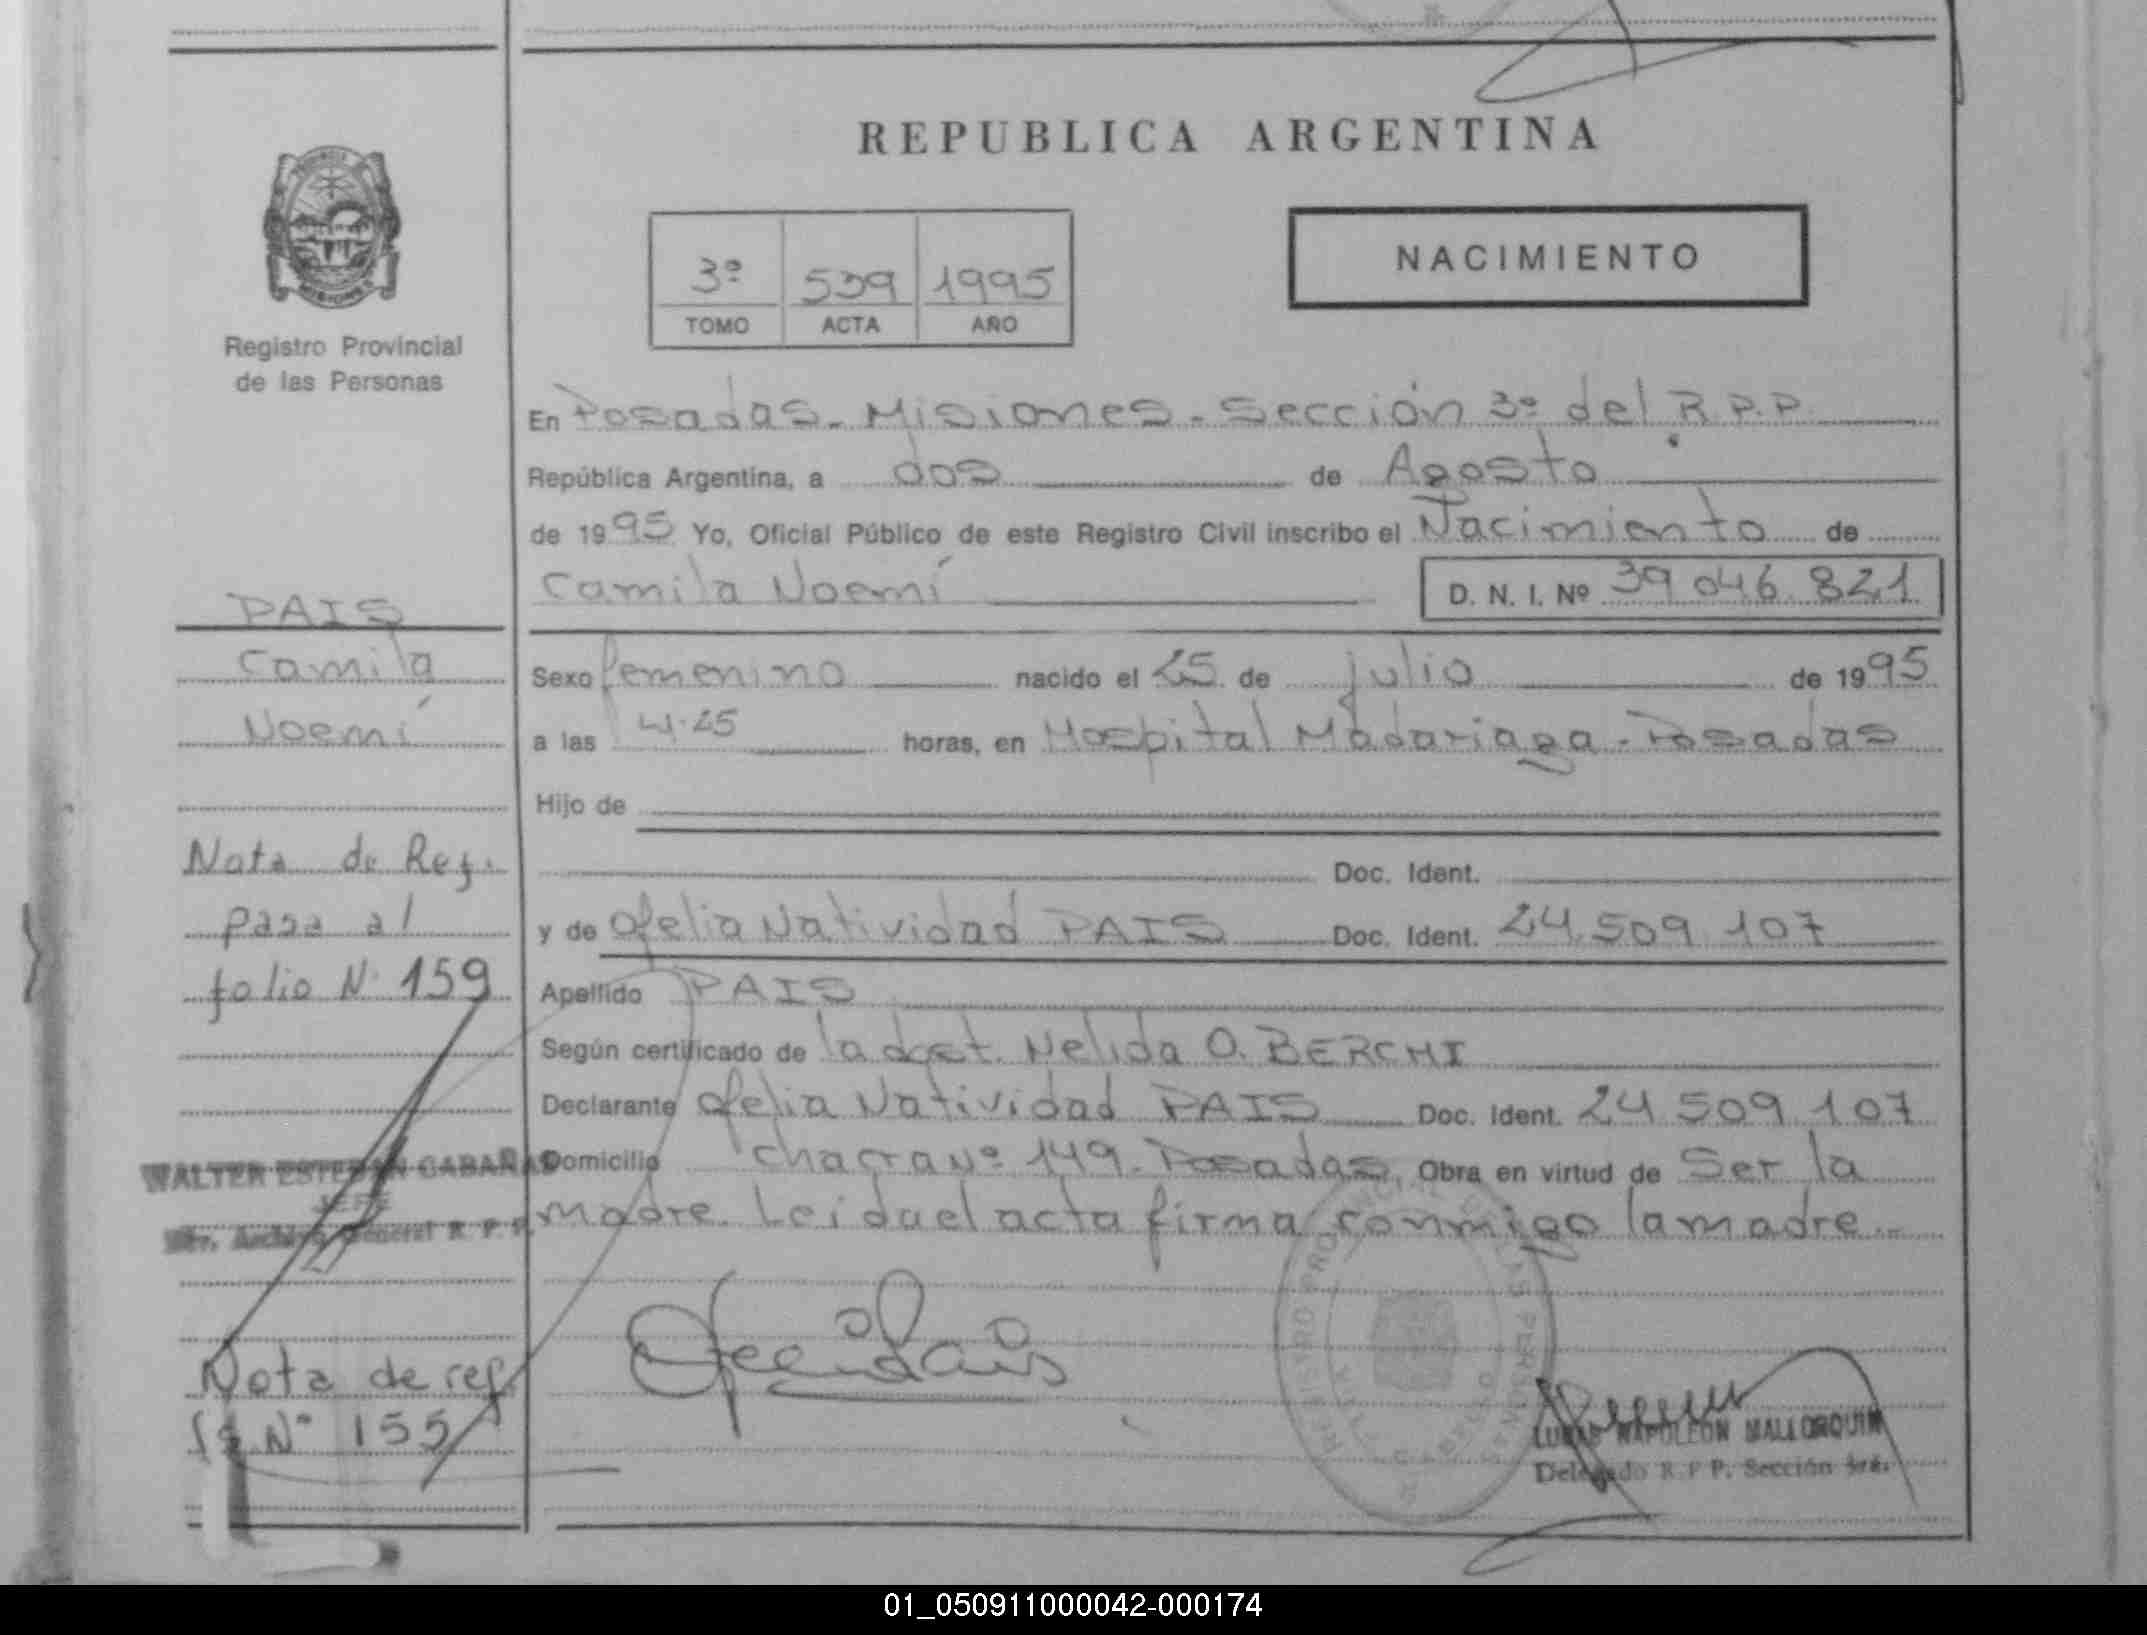 REPUBLICA ARGENTINA
NACIMIENTO
3º 539 1995
TOMO ACTA AÑO
MISIONES
Registro Provincial
de las Personas
En Posadas - Misiones - Sección 3º del R.P.P.
República Argentina, a dos de Agosto
de 1995 Yo, Oficial Público de este Registro Civil inscribo el Nacimiento de
Camila Noemí D. N. I. Nº 39 046 821
PAIS
Camila
Noemí
Sexo femenino nacido el 25 de julio de 1995
a las 4.25 horas, en Hospital Madariaga - Posadas
Hijo de
Doc. Ident.
y de Ofelia Natividad PAIS Doc. Ident. 24.509.107
Apellido PAIS
Según certificado de la doct. Nelida O. BERCHI
Declarante Ofelia Natividad PAIS Doc. Ident. 24 509 107
Domicilio chacra Nº 149 - Posadas. Obra en virtud de Ser la
madre. Leida el acta firma conmigo la madre.
Nota de Ref.
pasa al
folio Nº 159
WALTER ESTEBAN CABAÑAS
JEFE
Archivo General R. P. P.
Nota de ref.
Nº 155
Ofelia Pais
REGISTRO PROVINCIAL DE LAS PERSONAS
LUCAS NAPOLEON MALLORQUIN
Delegado R.P.P. Sección 3ra.
01_050911000042-000174